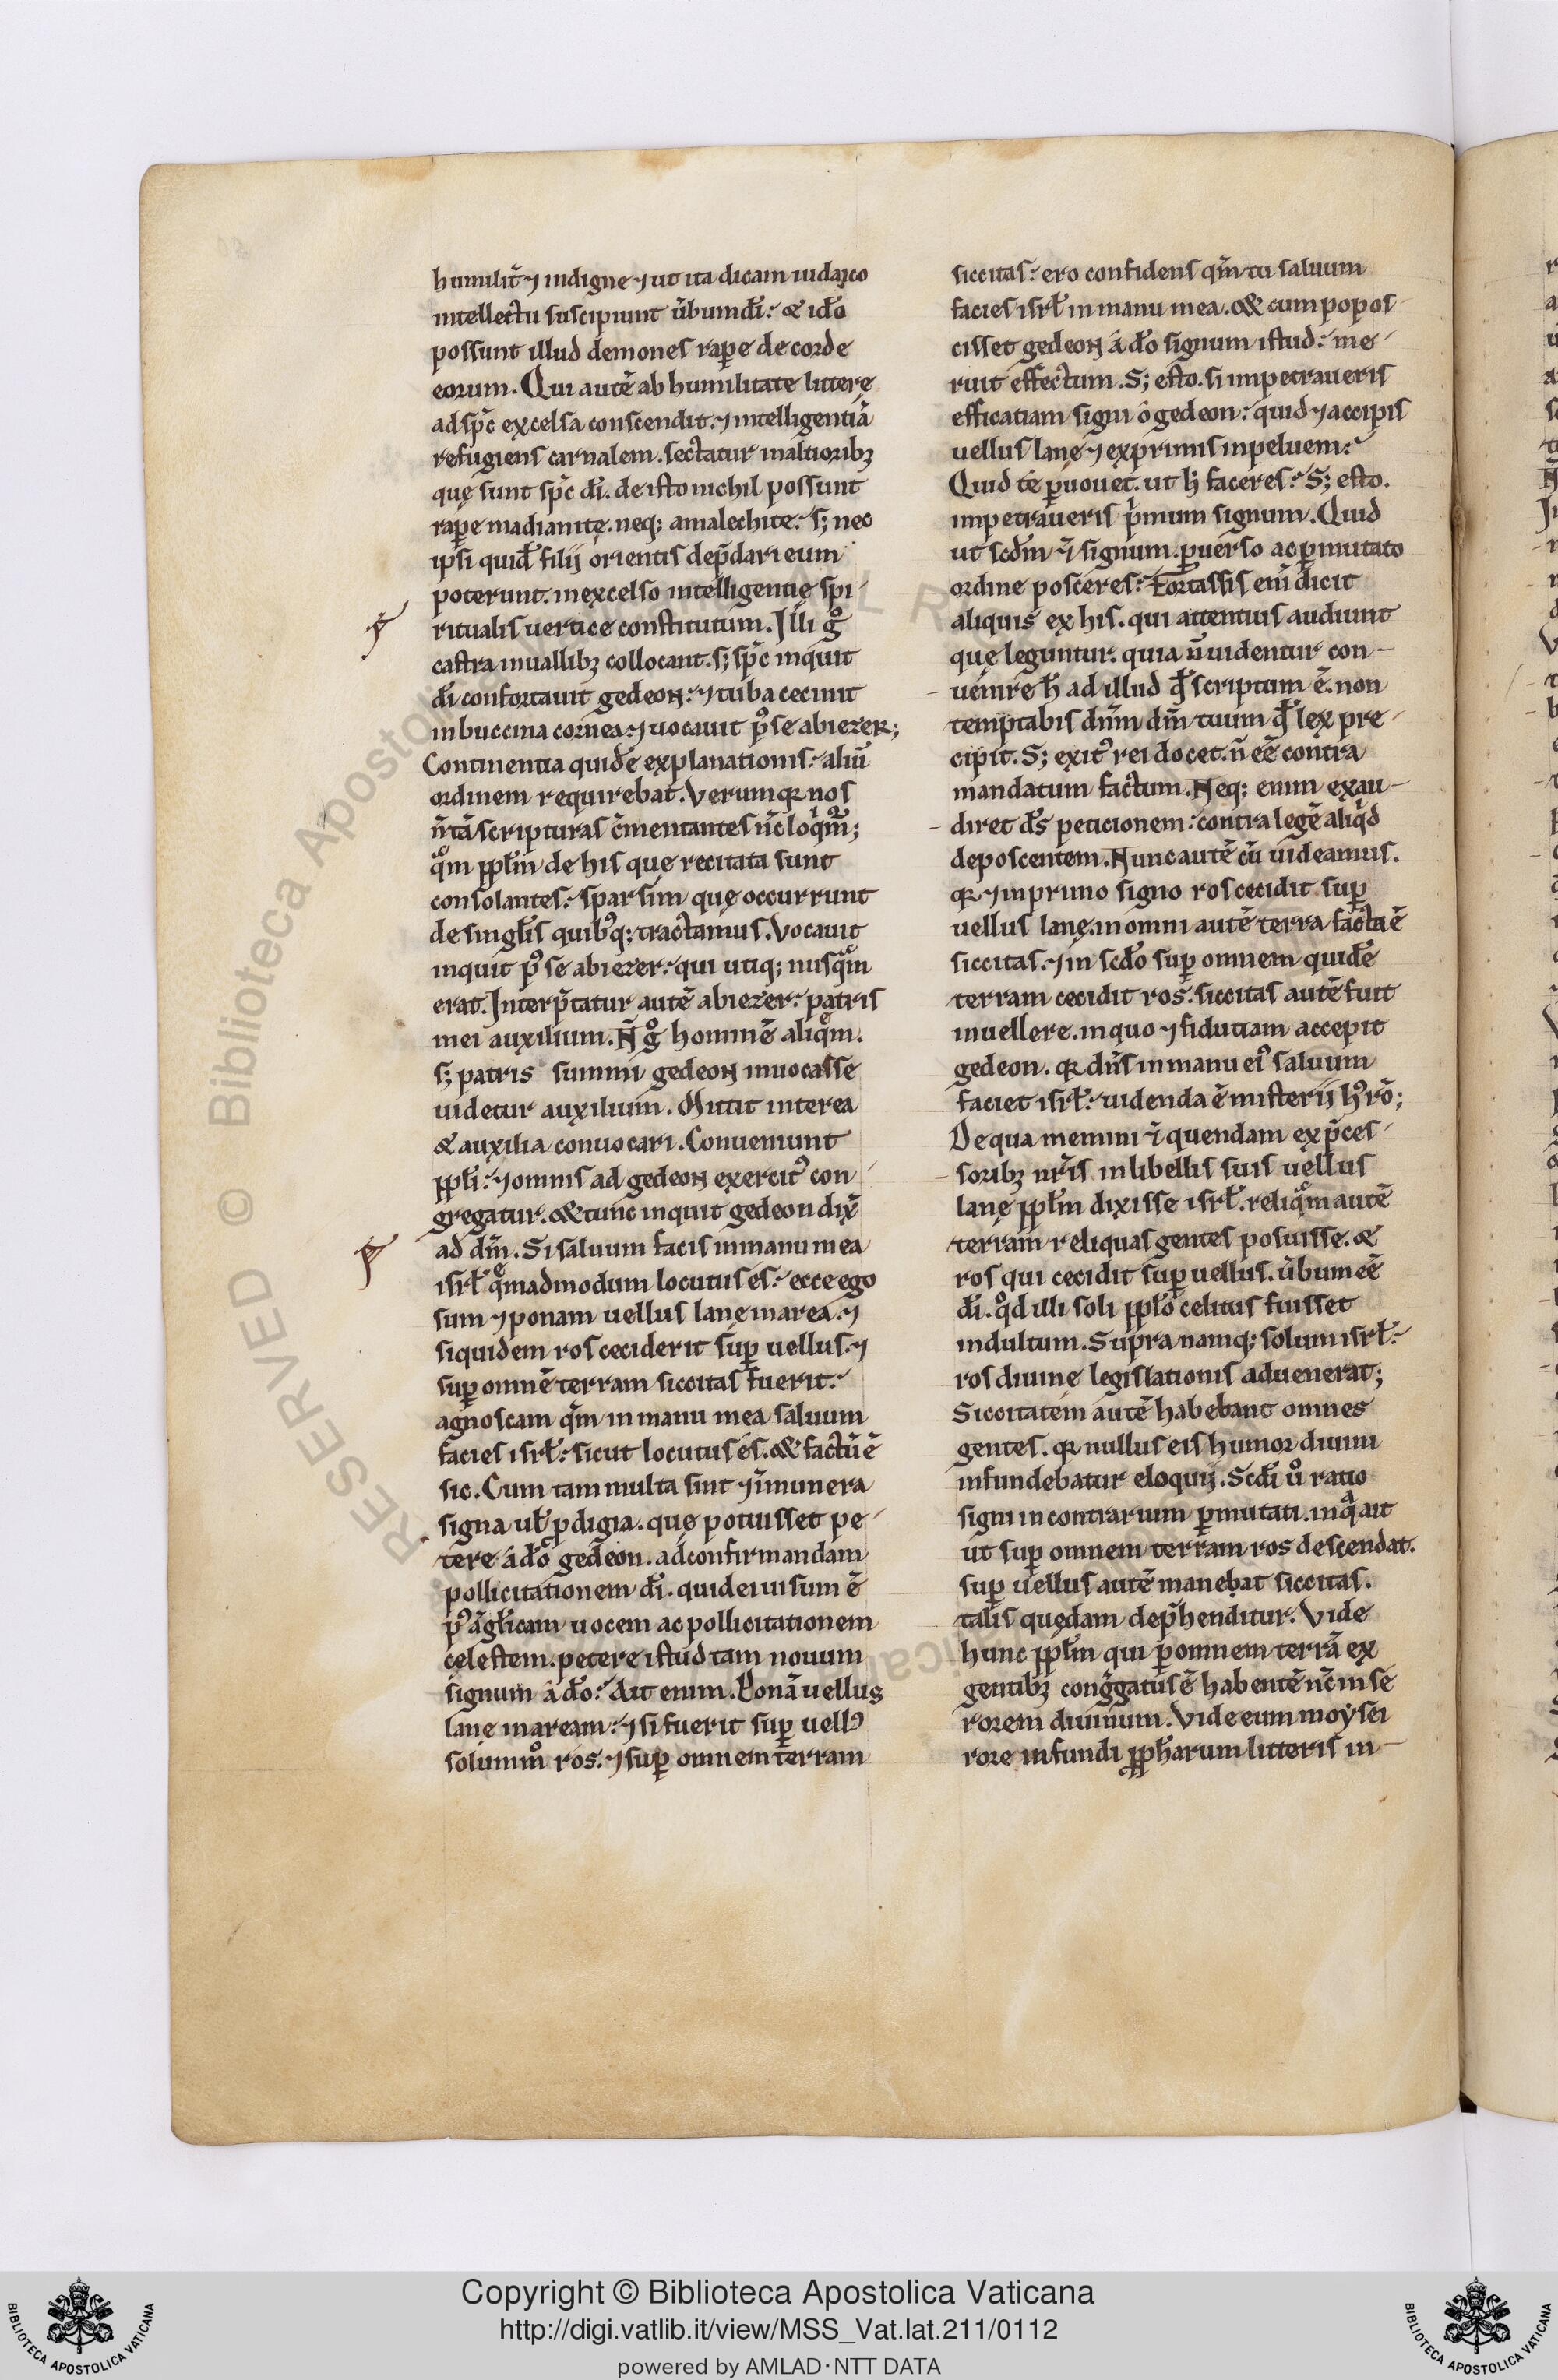 humilit̄ ⁊ indigne ⁊ ut ita dicam iudaico
intellectu suscipiunt ūbum dī. & idō
possunt illud demones rap̄e de corde
eorum. Qui autē ab humilitate litterę
ad sp̄c excelsa conscendit. ⁊ intelligentiā
refugiens carnalem. sectatur in altioribꝫ
quę sunt sp̄c dī. de isto nichil possunt
rap̄e madianitę. neq; amalechite. s; nec
ipsi quid̄ filij orientis dep̄dari eum
poterunt. in excelso intelligentię spi-
ritualis uertice constitutum. Illi gͦ
castra in uallibꝫ collocant. s; sp̄c inquit
dī confortauit gedeon. ⁊ tuba cecinit
in buccina cornea. ⁊ uocauit p᷒ se abiezer;
Continentia quidē explanationis. aliū
ordinem requirebat. Verum qꝛ nos
n̄ tā scripturas c̄mentantes n̄c loqͥmͬ;
qͣm ppl̄m de his quę recitata sunt
consolantes. sparsim quę occurrunt
de singl̄is quibꝰq; tractamus. Vocauit
inquit p᷒ se abiezer. qui utiq; nusqͣm
erat. Interp̄tatur autē abiezer. patris
mei auxilium. N̄ gͦ hominē aliqͤm.
s; patris summi gedeon inuocasse
uidetur auxilium. Mittit interea
& auxilia conuocari. Conueniunt
ppl̄i. ⁊ omnis ad gedeon exercitꝰ con-
gregatur. & tunc inquit gedeon dix̄
ad dm̄. Si saluum facis in manu mea
isrl̄ qͤmadmodum locutus es. ecce ego
sum ⁊ ponam uellus lanę in area. ⁊
siquidem ros ceciderit suꝑ uellus. ⁊
suꝑ omnē terram siccitas fuerit.
agnoscam qm̄ in manu mea saluum
facies isrl̄. sicut locutus es. & factū ē
sic. Cum tam multa sint ⁊ īmunera
signa ul̄ ꝓdigia. quę potuisset pe-
tere a dō gedeon. ad confirmandam
pollicitationem dī. quid ei uisum ē
p᷒ āgl̄icam uocem ac pollicitationem
celestem. petere istud tam nouum
signum a dō. Ait enim. Ponā uellus
lanę in aream. ⁊ si fuerit suꝑ uellꝰ
solummͦ ros. ⁊ suꝑ omnem terram
siccitas. ero confidens qm̄ tu saluum
facies isrl̄ in manu mea. & cum popos-
cisset gedeon a dō signum istud. me-
ruit effectum. S; esto. si impetraueris
efficatiam signi o gedeon. quid ⁊ accipis
uellus lanę ⁊ exprimis in peluem.
Quid te ꝑuouet. ut h̄ faceres. S; esto.
impetraueris pͥmum signum. Quid
ut scd̄m ⁊ signum. ꝑuerso ac ꝑmutato
ordine posceres. Fortassis eni dicit
aliquis ex his. qui attentius audiunt
quę leguntur. quia n̄ uidentur con-
uenire h̄ ad illud qd̄ scriptum ē. non
temptabis dnm̄ dm̄ tuum qd̄ lex pre-
cipit. S; exitꝰ rei docet. n̄ eē contra
mandatum factum. Neq; enim exau-
diret ds̄ peticionem. contra legē aliqͥd
deposcentem. Nunc autē cū uideamus.
qꝛ ⁊ in primo signo ros cecidit suꝑ
uellus lanę. in omni autē terra facta ē
siccitas. ⁊ in scd̄o suꝑ omnem quidē
terram cecidit ros. siccitas autē fuit
in uellere. in quo ⁊ fidutiam accepit
gedeon. qꝛ dn̄s in manu eiꝰ saluum
faciet isrl̄. uidenda ē misterij hꝰ rō;
De qua memini ⁊ quendam ex p̄ces-
soribꝫ nr̄is in libellis suis uellus
lanę ppl̄m dixisse isrl̄. reliqͣm autē
terram reliquas gentes posuisse. &
ros qui cecidit suꝑ uellus. ūbum eē
dī. qͦd illi soli ppl̄o celitus fuisset
indultum. Supra namq; solum isrl̄.
ros diuine legislationis aduenerat;
Siccitatem autē habebant omnes
gentes. qꝛ nullus eis humor diuini
infundebatur eloquij. Scdī uͦ ratio
signi in contrarium ꝑmutati. in qͣ ait
ut suꝑ omnem terram ros descendat.
suꝑ uellus autē manebat siccitas.
talis quędam dep̄henditur. Vide
hunc ppl̄m qui ꝑ omnem terrā ex
gentibꝫ cong̃gatus ē habentē n̄c in se
rorem diuinum. Vide eum moysei
rore infundi ꝓpharum litteris in-
RESERVED © Biblioteca Apostolica
Copyright © Biblioteca Apostolica Vaticana
http://digi.vatlib.it/view/MSS_Vat.lat.211/0112
powered by AMLAD·NTT DATA
BIBLIOTECA APOSTOLICA VATICANA
BIBLIOTECA APOSTOLICA VATICANA